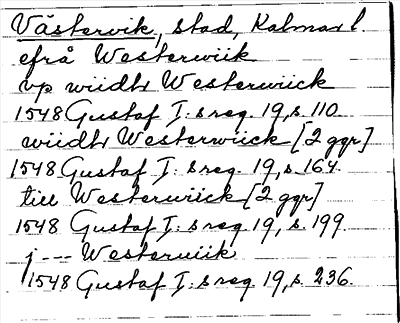 Västervik, stad, Kalmar l.
efrå Westerwiik
vp wiidtr Westerwiick
1548 Gustaf I:s reg. 19, s. 110.
wiidtr Westerwiick [2 ggr]
1548 Gustaf I:s reg. 19, s. 164.
till Westerwiick [2 ggr]
1548 Gustaf I:s reg. 19, s. 199
j --- Westerwiik
1548 Gustaf I:s reg. 19, s. 236.